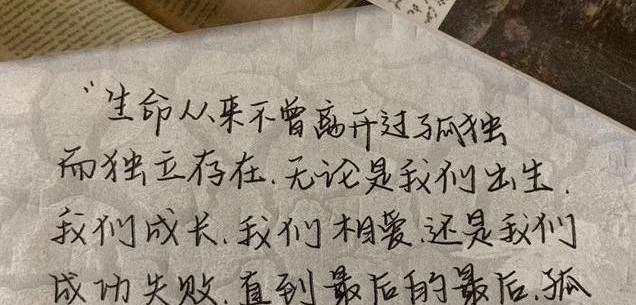 “生命从来不曾离开过孤独
而独立存在.无论是我们出生.
我们成长.我们相爱.还是我们
成功失败.直到最后的最后.孤